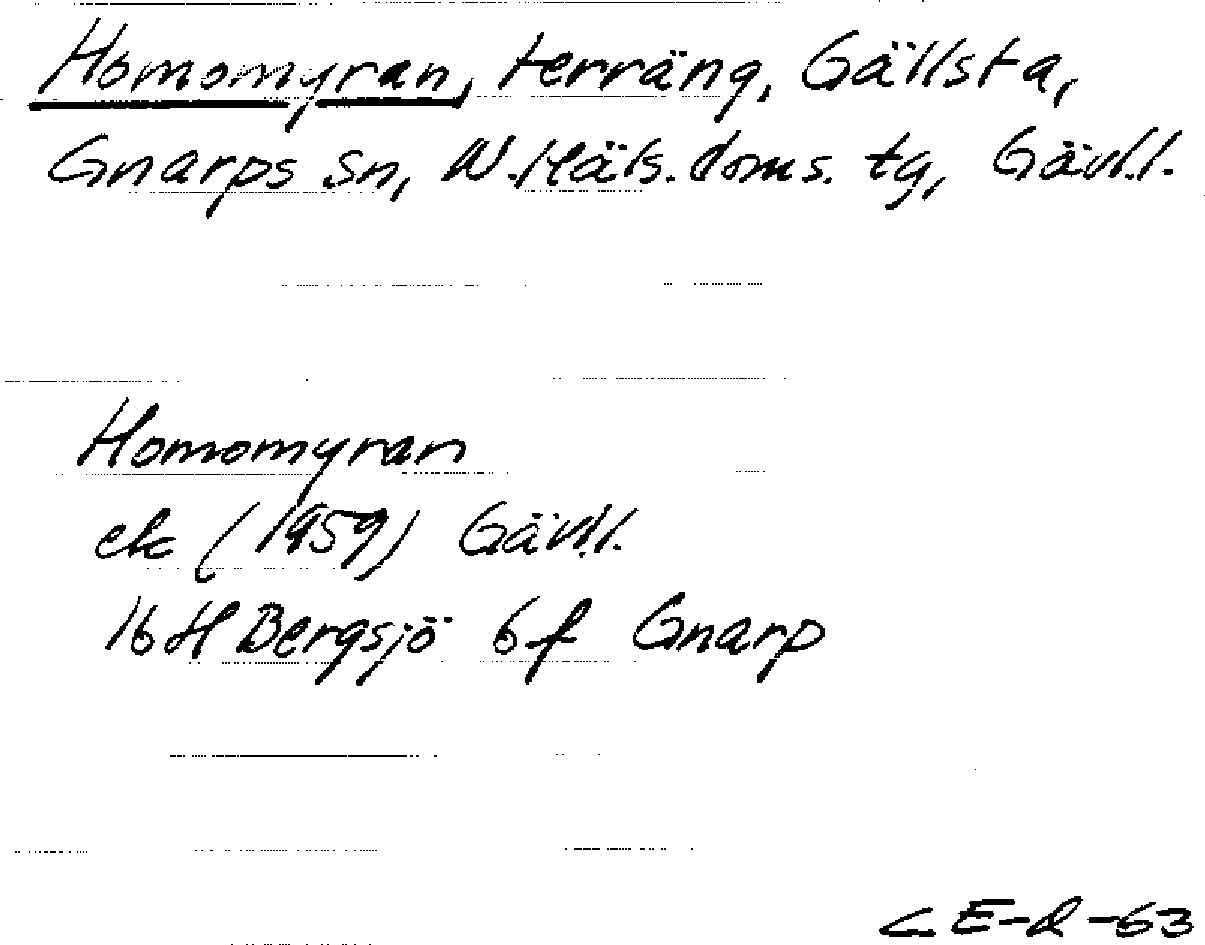 Homomyran, terräng, Gällsta,
Gnarps sn, N. Häls. doms. tg, Gävl.l.
Homomyran
ek (1959) Gävl.l.
16H Bergsjö 6f Gnarp
CE-R-63